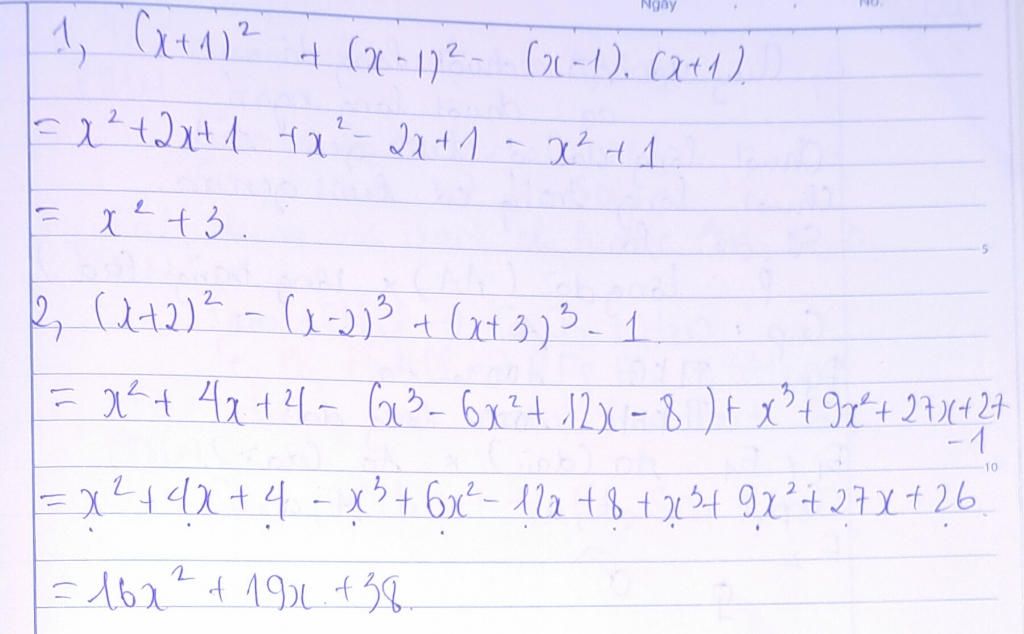 Ngày No.
1, (x+1)² + (x-1)² - (x-1). (x+1).
= x² + 2x + 1 + x² - 2x + 1 - x² + 1.
= x² + 3.
5
2, (x+2)² - (x-2)³ + (x+3)³ - 1.
= x² + 4x + 4 - (x³ - 6x² + 12x - 8) + x³ + 9x² + 27x + 27
- 1
10
= x² + 4x + 4 - x³ + 6x² - 12x + 8 + x³ + 9x² + 27x + 26
= 16x² + 19x + 38.